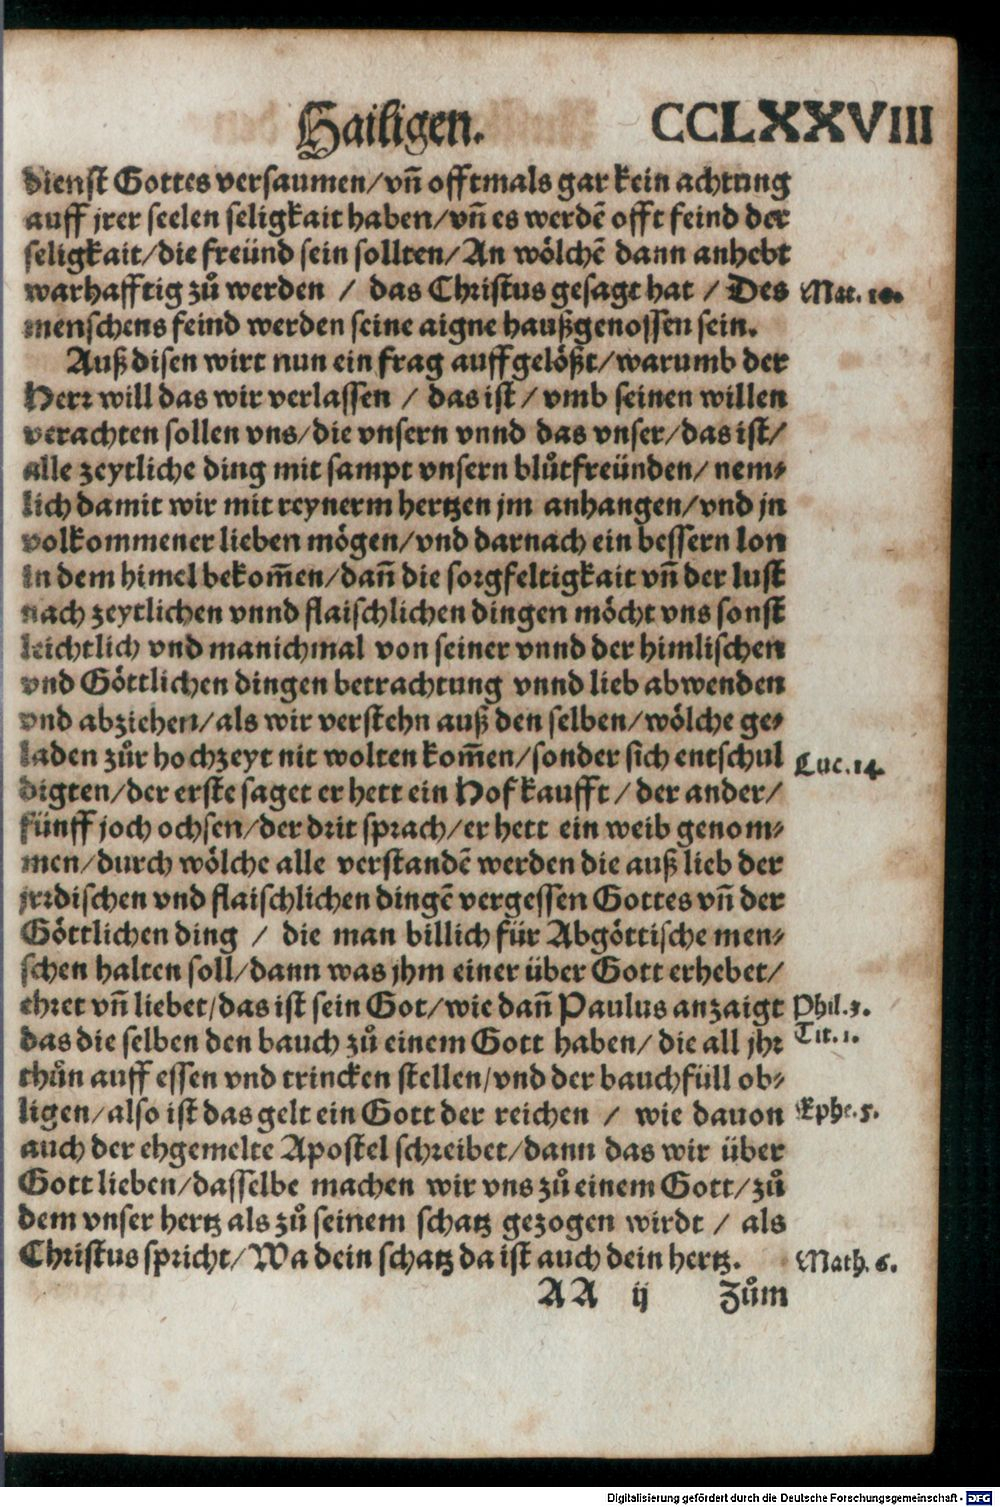 Hailigen. CCLXXVIII
dienst Gottes versaumen/vñ offtmals gar kein achtung
auff jrer seelen seligkait haben/vñ es werdẽ offt feind der
seligkait/die freünd sein sollten/An wölchẽ dann anhebt
warhafftig zů werden / das Christus gesagt hat / Des Mat. 10.
menschens feind werden seine aigne haußgenossen sein.
Auß disen wirt nun ein frag auffgelößt/warumb der
Herr will das wir verlassen / das ist / vmb seinen willen
verachten sollen vns/die vnsern vnnd das vnser/das ist/
alle zeytliche ding mit sampt vnsern blůtfreünden/ nem⸗
lich damit wir mit reynerm hertzen jm anhangen/vnd jn
volkommener lieben mögen/vnd darnach ein bessern lon
in dem himel bekom̃en/dañ die sorgfeltigkait vñ der lust
nach zeytlichen vnnd flaischlichen dingen möcht vns sonst
leichtlich vnd manichmal von seiner vnnd der himlischen
vnd Göttlichen dingen betrachtung vnnd lieb abwenden
vnd abziehen/als wir verstehn auß den selben/wölche ge⸗
laden zůr hochzeyt nit wolten kom̃en/sonder sich entschul Luc. 14.
digten/der erste saget er hett ein Hof kaufft / der ander/
fünff joch ochsen/der drit sprach/er hett ein weib genom⸗
men/durch wölche alle verstandẽ werden die auß lieb der
jrrdischen vnd flaischlichen dingẽ vergessen Gottes vñ der
Göttlichen ding / die man billich für Abgöttische men⸗
schen halten soll/dann was jhm einer über Gott erhebet/
ehret vñ liebet/das ist sein Got/wie dañ Paulus anzaigt Phil. 3.
das die selben den bauch zů einem Gott haben/ die all jhr Tit. 1.
thůn auff essen vnd trincken stellen/vnd der bauchfüll ob⸗
ligen/also ist das gelt ein Gott der reichen / wie dauon Ephe. 5.
auch der ehgemelte Apostel schreibet/dann das wir über
Gott lieben/dasselbe machen wir vns zů einem Gott/zů
dem vnser hertz als zů seinem schatz gezogen wirdt / als
Christus spricht/Wa dein schatz da ist auch dein hertz. Math. 6.
AA ij Zům
Digitalisierung gefördert durch die Deutsche Forschungsgemeinschaft - DFG